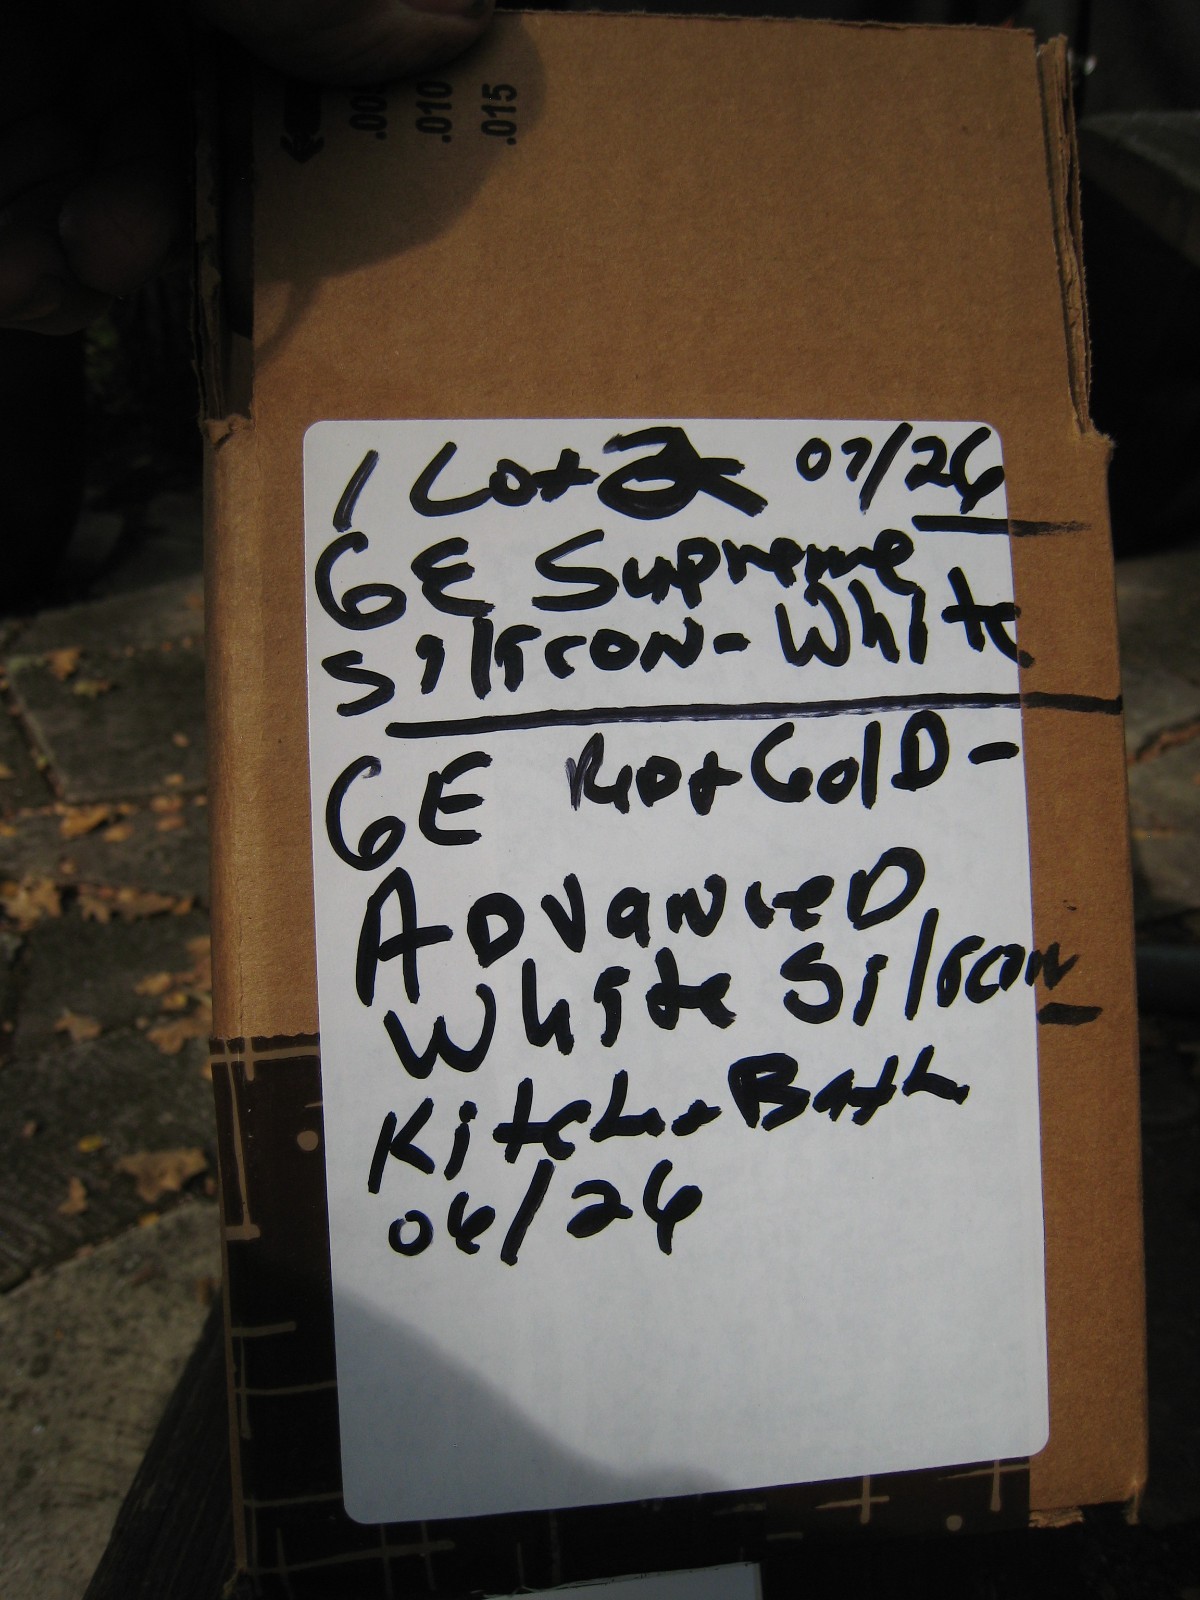 .005
.010
.015
1 Lot 2 07/26
GE Supreme
Silicon-White
GE Not Gold-
Advanced
White Silicon
Kitch + Bath
06/26